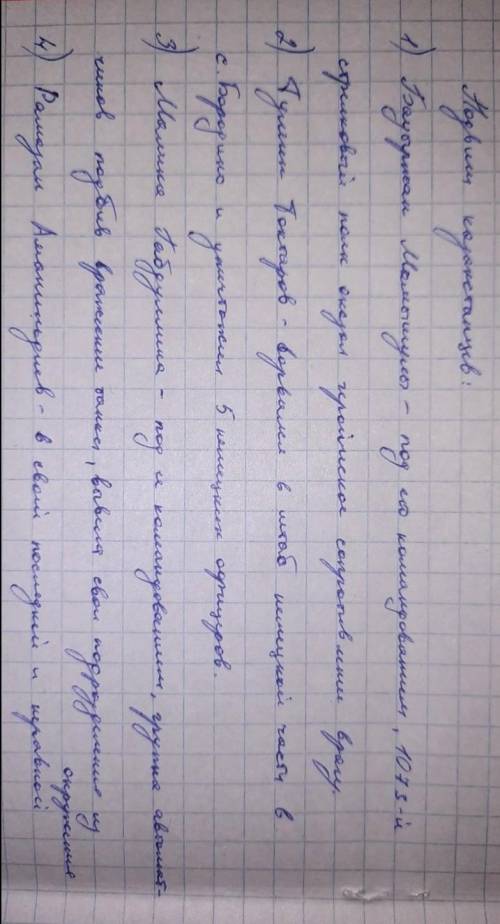 Подвиги казахстанцев:
1) Бауыржан Момышулы - под его командованием, 1073-й
стрелковый полк оказал геройское сопротивление врагу.
2) Тулеген Тохтаров - ворвался в штаб немецкой части в
с. Бородино и уничтожил 5 немецких офицеров.
3) Малика Габдуллина - под и командованием, группа автомат-
чиков подбив вражеские танки, вывела свои подразделения из
окружения
4) Рамазан Амангельдиев - в своей последней и неравной